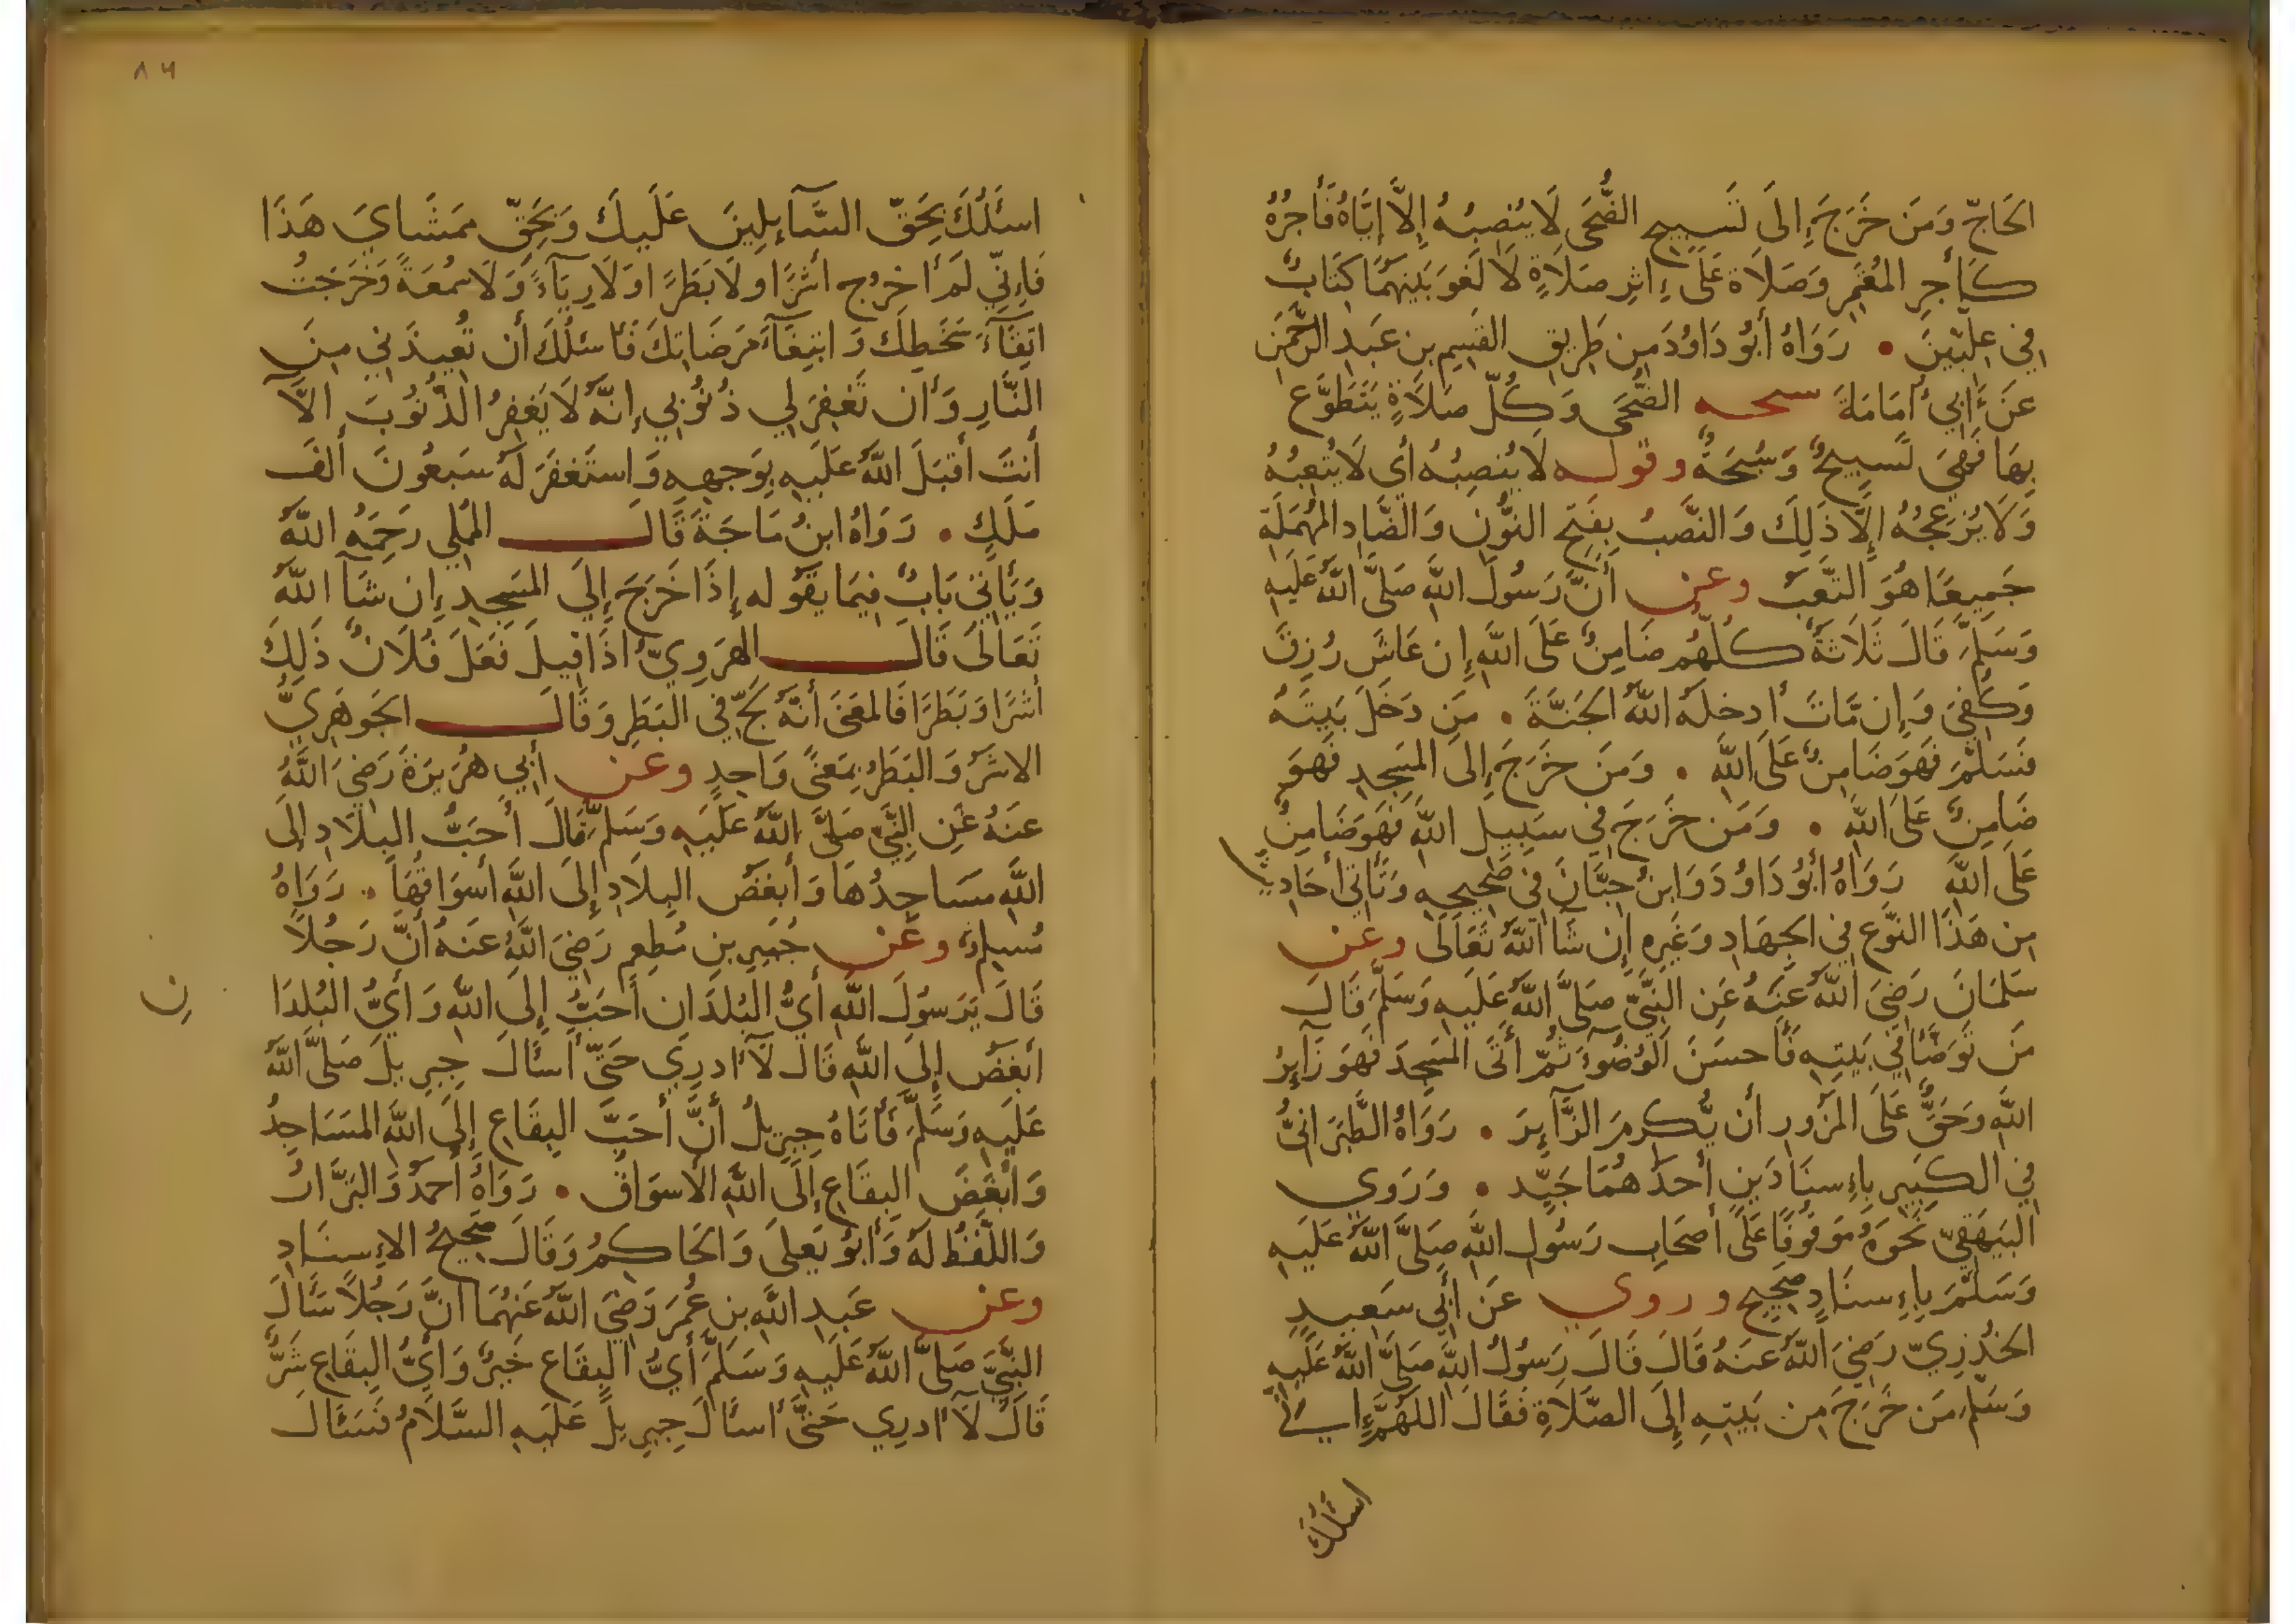 الحَاجّ وَمَن خَرَجَ إِلَى تَسبِيحِ الضُّحَى لَا يُنصِبُهُ إِلَّا إِيَّاهُ فَأَجرُهُ
كَأَجرِ المُعتَمِرِ وَصَلَاة عَلَى إِثرِ صَلَاةٍ لَا لَغوَ بَينَهُمَا كِتَابٌ
فِي عِلِّيِّينَ • رَوَاهُ أَبُو دَاوُدَ مِن طَرِيقِ القَسِمِ بنِ عَبدِ الرَّحمَنِ
عَن أَبِي أُمَامَةَ سبحه الضُّحَى وَكُلّ صَلَاةٍ يَتَطَوَّع
بِهَا فَهِيَ تَسبِيحٌ وَسُبحَةٌ وقوله لَا يُنصِبُهُ أَي لَا يُتعِبُهُ
وَلَا يُزعِجُهُ إِلَّا ذَلِكَ وَالنَّصَبُ بِفَتحِ النُّونِ وَالصَّادِ المُهمَلَةِ
جَمِيعًا هُوَ التَّعَبُ وعن أَنَّ رَسُولَ اللَّهِ صَلَّى اللَّهُ عَلَيهِ
وَسَلَّمَ قَالَ ثَلَاثَةٌ كُلُّهُم ضَامِنٌ عَلَى اللَّهِ إِن عَاشَ رُزِقَ
وَكُفِيَ وَإِن مَّاتَ أَدخلَهُ اللَّهُ الجَنَّةَ • مَن دَخَلَ بَيتَهُ
فَسَلَّمَ فَهوَ ضَامِنٌ عَلَى اللَّهِ • وَمَن خَرَجَ إِلَى المَسجِدِ فَهوَ
ضَامِنٌ عَلَى اللَّهِ • وَمَن خَرَجَ فِي سَبِيلِ اللَّهِ فَهوَ ضَامِنٌ
عَلَى اللَّهِ رَوَاهُ أَبُو دَاوُدَ وَابنُ حِبَّانَ فِي صَحِيحِهِ وَتَأتِي أَحَادِيثُ
مِن هَذَا النَّوعِ فِي الجِهَادِ وَغَيرِهِ إِن شَا اللَّهُ تَعَالَى وعن
سَلمَانَ رَضِيَ اللَّهُ عَنهُ عَنِ النَّبِيِّ صَلَّى اللَّهُ عَلَيهِ وَسَلَّمَ قَالَ
مَن تَوَضَّأَ فِي بَيتِهِ فَأَحسَنَ الوُضُوٓءَ ثُمَّ أَتَى المَسجِدَ فَهوَ زَآئِرُ
اللَّهِ وَحَقٌّ عَلَى المَزُورِ أَن يُّكرِمَ الزَّآئِرَ • رَوَاهُ الطَّبَرَانِيُّ
فِي الكَبِيرِ بِإِسنَادَينِ أَحَدُهُمَا جَيِّد • وَرَوَي
البَيهَقِيّ نَحوَهُ مَوقُوفًا عَلَى أَصحَابِ رَسُولِ اللَّهِ صَلَّى اللَّهُ عَلَيهِ
وَسَلَّمَ بِإِسنَادٍ صَحِيحٍ وروي عَن أَبِي سَعِيدٍ
الخُدرِيّ رَضِيَ اللَّهُ عَنهُ قَالَ قَالَ رَسُولُ اللَّهِ صَلَّى اللَّهُ عَلَيهِ
وَسَلَّمَ مَن خَرَجَ مِن بَيتِهِ إِلَى الصَّلَاةِ فَقَالَ اللَّهُمَّ إِنِّي
اسئلك
٨٦
اسئَلُكَ بِحَقِّ السَّآئِلِينَ عَلَيكَ وَبِحَقِّ مَمشَايَ هَذَا
فَإِنِّي لَم أَخرُج أَشَرًا وَلَا بَطَرًا وَلَا رِيَآءً وَلَا سُمعَةً وَخَرَجتُ
اتِّقَآءَ سَخَطِكَ وَابتِغَآءَ مَرضَاتِكَ فَأَسئَلُكَ أَن تُعِيذَنِي مِنَ
النَّارِ وَأَن تَغفِرَ لِي ذُنُوبِي إِنَّهُ لَا يَغفِرُ الذُّنُوبَ إِلَّا
أَنتَ أَقبَلَ اللَّهُ عَلَيهِ بِوَجهِهِ وَاستَغفَرَ لَهُ سَبعُونَ أَلفَ
مَلَكٍ • رَوَاهُ ابنُ مَاجَة قَالَ المملي رَحِمَه اللَّهُ
وَيَأتِي بَابٌ فِيمَا يَقُوله إِذَا خَرَجَ إِلَى المَسجِدِ إِن شَآ اللَّهُ
تَعَالَى قَالَ الهَرَوِيّ إِذَا قِيلَ فَعَلَ فُلَانٌ ذَلِكَ
أَشَرًا وَبَطَرًا فَالمَعنَى أَنَّهُ لَجَّ فِي البَطَرِ وَقَالَ الجَوهَرِيُّ
الاشَرُ وَالبَطَرُ بِمَعنًى وَاحِدٍ وعن أَبِي هُرَيرَةَ رَضِيَ اللَّهُ
عَنهُ عَنِ النَّبِيِّ صَلَّى اللَّهُ عَلَيهِ وَسَلَّمَ قَالَ أَحَبُّ البِلَادِ إِلَى
اللَّهِ مَسَاجِدُهَا وَأَبغَضُ البِلَادِ إِلَى اللَّهِ أَسوَاقُهَا • رَوَاهُ
مُسلِمٌ وعَن جُبَيرِ بنِ مُطعِمٍ رَضِيَ اللَّهُ عَنهُ أَنَّ رَجُلًا
قَالَ يَرَسُولَ اللَّهِ أَيُّ البُلدَانِ أَحَبُّ إِلَى اللَّهِ وَأَيُّ البُلدَا
نِ
أَبغَضُ إِلَى اللَّهِ قَالَ لَآ أَدرِي حَتَّى أَسأَلَ جِبرِيلَ صَلَّى اللَّهُ
عَلَيهِ وَسَلَّمَ فَأَتَاهُ جِبرِيلُ أَنَّ أَحَبَّ البِقَاعِ إِلَى اللَّهِ المَسَاجِدُ
وَأَبغَضَ البِقَاعِ إِلَى اللَّهِ الأَسوَاقُ • رَوَاهُ أَحمَدُ وَالبَزَّارُ
وَاللَّفظُ لَهُ وَأَبُو يَعلَى وَالحَاكِمُ وَقَالَ صَحِيحُ الإِسنَادِ
وعن عَبدِ اللَّهِ بن عُمَرَ رَضِيَ اللَّهُ عَنهُمَا أَنَّ رَجُلًا سَأَلَ
النَّبِيَّ صَلَّى اللَّهُ عَلَيهِ وَسَلَّمَ أَيُّ البِقَاعِ خَيرٌ وَأَيُّ البِقَاعِ شَرٌّ
قَالَ لَآ أَدرِي حَتَّى أَسأَلَ جِبرِيلَ عَلَيهِ السَّلَامُ فَسَأَلَ